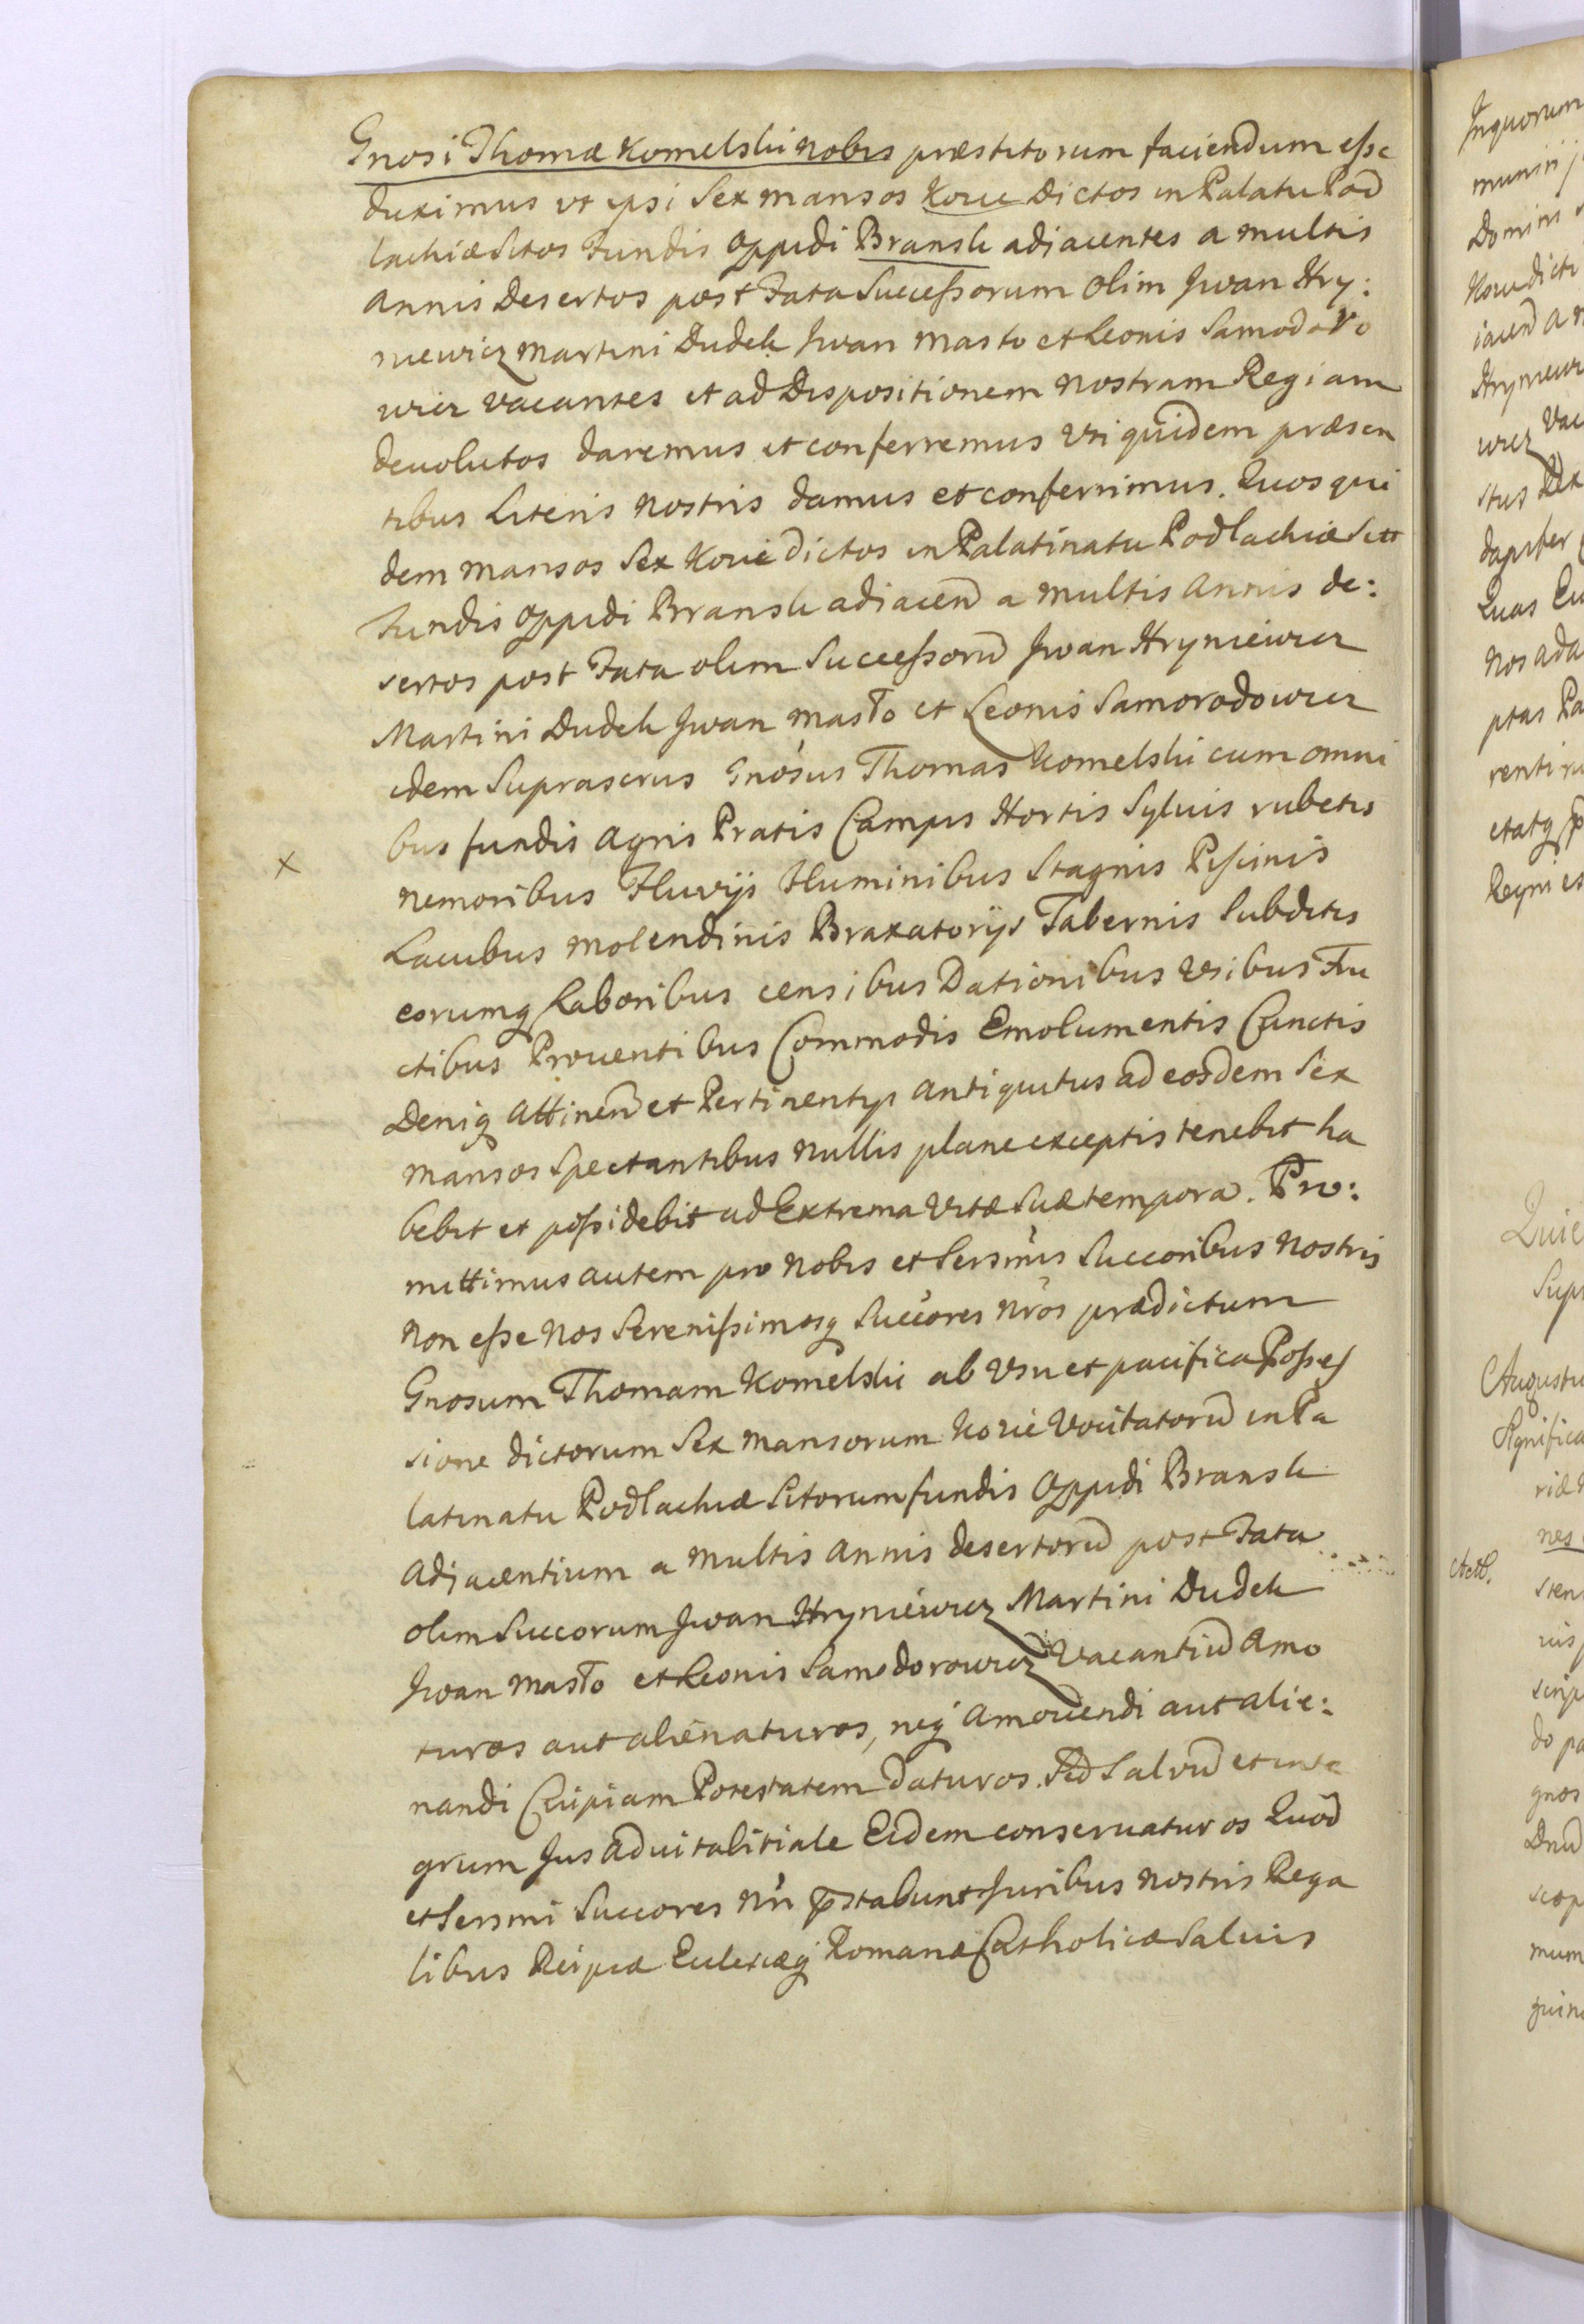 Gnosi Thomæ Komelski nobis præstitorum faciendum esse
duximus ut ipsi Sex mansos Kou​ie Dictos in Palatu Pod
lachiæ Sitos Fundis Oppidi Bransk adiacentes a multis
Annis Desertos post Fata Successorum Olim Jwan Hry:
niewicz Martini Dudek Jwan Masto et Leonis Samodoro
wicz vacantes et ad Dispositionem nostram Regiam
devolutos daremus et conferremus Uti quidem præsen
tibus Literis nostris damus et conferrimus. Quos qui
dem mansos Sex Kouie dictos in Palatinatu Podlachiæ Sitt
Fundis Oppidi Bransk adiacen a multis Annis de:
sertos post Fata olim Successoru Jwan Hryniewicz
Martini Dudek Jwan Masto et Leonis Samorodowicz
idem Suprascrus Gnosus Thomas Komelski cum omni
bus fundis Agris Pratis Campis Hortis Sylvis rubetis
X
nemoribus Fluvijs Fluminibus Stagnis Piscinis
Lacubus molendinis Braxatorijs Tabernis Subditis
eorumq Laboribus censibus Dationibus Usibus Fru
ctibus Proventibus Commodis Emolumentis Cunctis
Deniq Attinen et Pertinentys antiquitus ad eosdem Sex
mansos Spectantibus nullis plane exceptis tenebit ha
bebit et possidebit ad Extrema Vitæ Suæ tempora. Pro:
mittimus autem pro nobis et Sersmis Succoribus nostris
non esse nos Serenissimosq Succores nros prædictum
Gnosum Thomam Komelski ab Usu et pacifica Posses
sione dictorum Sex mansorum Kozie Vocitatoru in Pa
latinatu Podlachiæ Sitorum fundis Oppidi Bransk
Adjacentium a multis annis desertoru post Fata
olim Succorum Jwan Hryniewicz Martini Dudek
Jwan Masto et Leonis Samodorowicz Vacantiu Amo
turos aut alienaturos, neq Amovendi aut alie:
nandi Cuipiam Potestatem Daturos. Sed Salvu et inte
grum Jus Advitalitiale Eidem conservaturos Quod
et Sersmi Succores nri pstabunt Juribus nostris Rega
libus Reipcæ Eclesiæq Romanæ Catholicæ Salvis
Inquorum
muniri
Domini
Kou dicti
iacen A
Hryniewi
wicz Vac
stus Rex
dapifer
Quas
Nos ada
ptas Pa
renti
etatq
Regni
Supr
Augustu
Significa
riæ
nes
Actb.
sten
scrip
do pa
gnos
Dnu
scop
mum